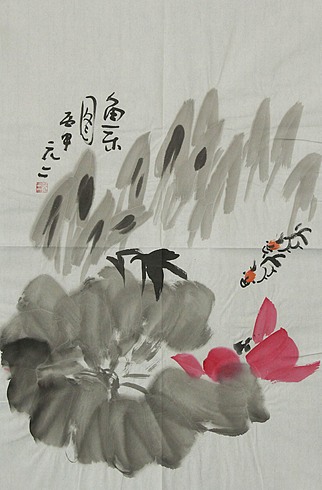 鱼乐
图
丙申
元二